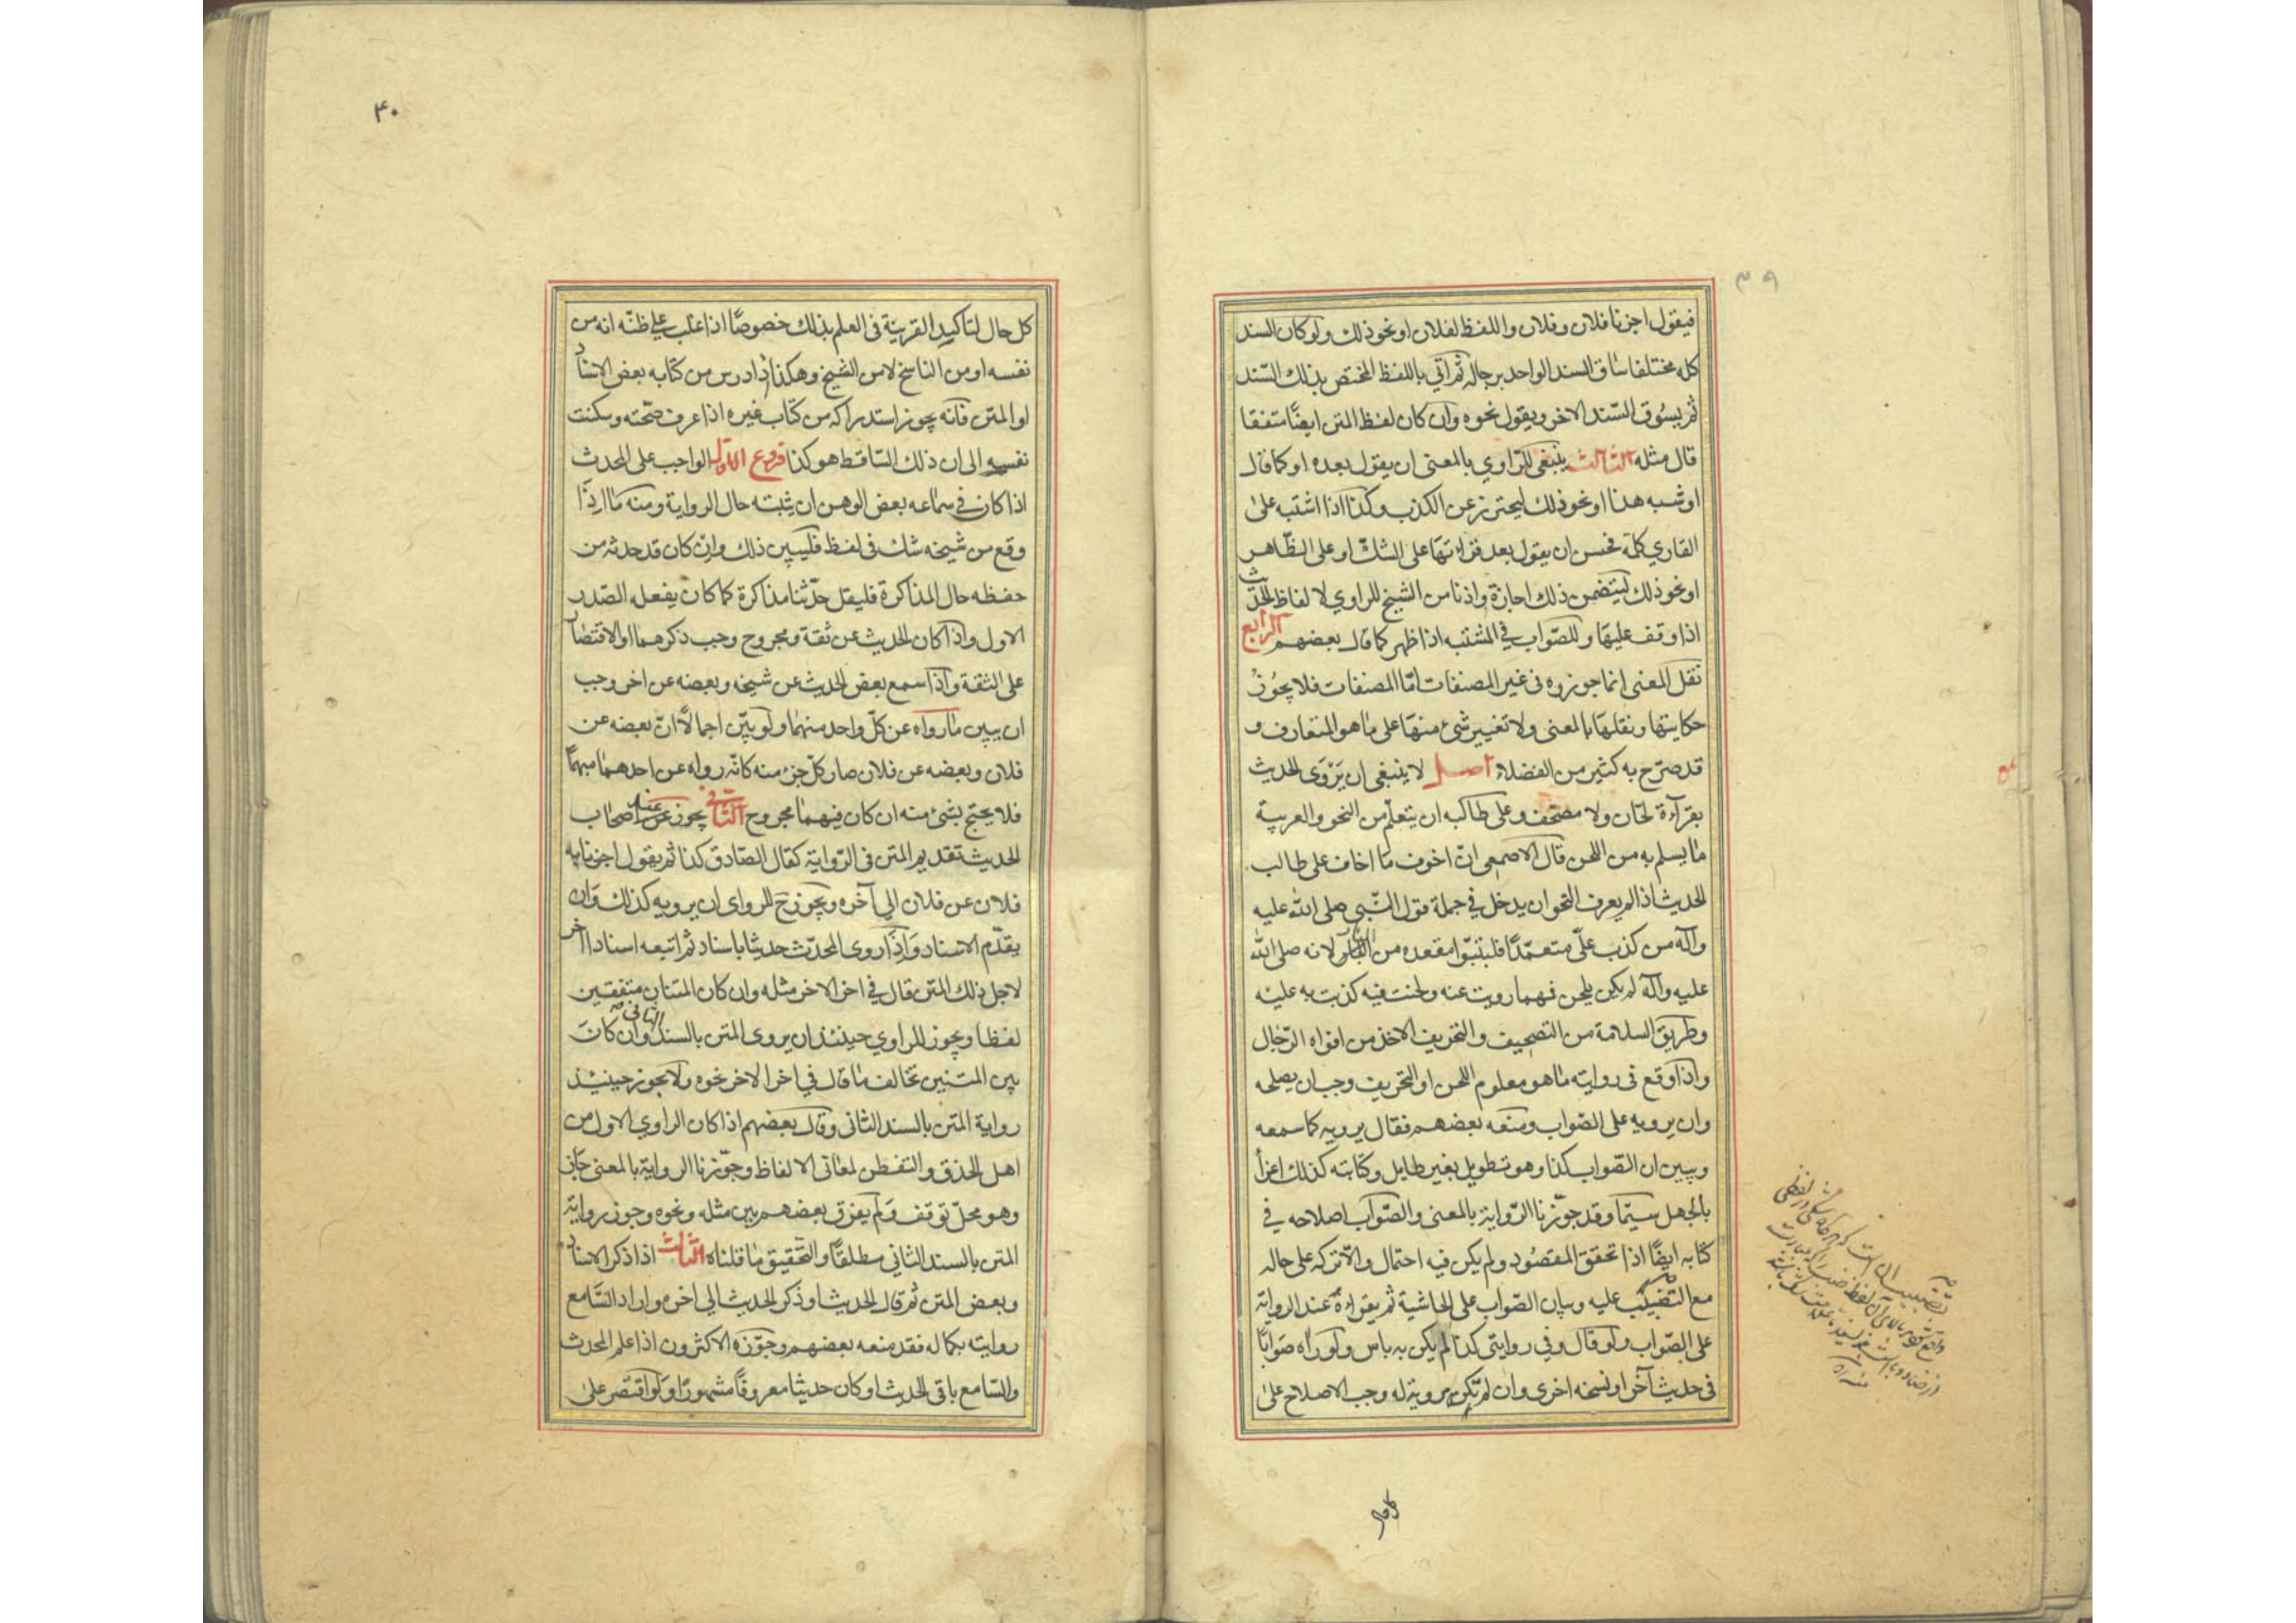 ٣٩
فيقول اخبرنا فلان وفلان واللفظ لفلان او نحو ذلك ولو كان السند
كله مختلفا ساق السند الواحد برجاله ثم اتي باللفظ المختص بذلك السّند
ثم يسُوق السّند الاخر ويقول نحوه وان كان لفظ المتن ايضًا متفقا
قال مثله الثالث ينبغى للرّاوي بالمعنى ان يقول بعده او كما قال
او شبه هذا او نحو ذلك ليحترز عن الكذب وكذا اذا اشتبه على
القاري كلمة فحسن ان يقول بعد قراءتها على الشك او على الظّاهر
او نحو ذلك ليتضمن ذلك اجازة واذنا من الشيخ للراوي لالفاظ الحديث
اذا وقف عليها وللصّواب في المشتبه اذا ظهر كما قال بعضهم الرابع
نقل المعنى انما جوزوه فى غير المصنفات امّا المصنفات فلا يجُوز
حكايتها ونقلها بالمعنى ولا تغيير شئ منها على ما هو المتعارف و
قد صرّح به كثير من الفضلاء اصل لا ينبغى ان يَرْوَى الحديث
بقراءة لحّان ولا مصحّف وعلى طالبه ان يتعلّم من النحو والعربية
ما يسلم به من اللحن قال الاصمعي انّ اخوف ما اخاف على طالب
الحديث اذا لم يعرف النّحو ان يدخل في جملة قول النّبي صلى الله عليه
وآله من كذب علىّ متعمّدًا فليتبوّا مقعده من النار لانه صلى الله
عليه وآله لم يكن يلحن فمهما رويت عنه ولحنت فيه كذبت به عليه
وطريق السلامة من التصحيف والتحريف الاخذ من افواه الرّجال
واذا وقع فى روايته ما هو معلوم اللحن او التحريف وجب ان يصلحه
وان يرويه على الصّواب ومنعه بعضهم فقال يرويه كما سمعه
ويبين ان الصّواب كذا وهو تطويل بغير طايل وكتابته كذلك اغراء
بالجهل سيّما وقد جوّزنا الرّواية بالمعنى والصّواب اصلاحه في
كتابه ايضًا اذا تحقق المقصُود ولم يكن فيه احتمال والّا تركه على حاله
مع التضبيب عليه وبيان الصّواب على الحاشية ثم يقراءهُ عند الرواية
على الصّواب ولو قال وفي روايتى كذا لم يكن به باس ولو راه صوابًا
فى حديث آخر او نسخه اخرى وان لم تكن مروية له وجب الاصلاح على
٤٠
كل حال لتاكيد القرينة فى العلم بذلك خصوصًا اذا غلب على ظنّه انه من
نفسه او من الناسخ لا من الشيخ وهكذا اذا درس من كتابه بعض الاسناد
او المتن فانه يجوز استدراكه من كتاب غيره اذا عرف صحّته وسكنت
نفسه الى ان ذلك السّاقط هو كذا فروع الاول الواجب على المحدث
اذا كان في سماعه بعض الوهن ان يثبته حال الرواية ومنه ما اذا
وقع من شيخه شك فى لفظ فليبين ذلك وان كان قد حدثه من
حفظه حال المذاكرة فليقل حدّثنا مذاكرة كما كان يفعله الصّدر
الاول واذا كان الحديث عن ثقة ومجروح وجب ذكرهما او الاقتصار
على الثقة واذا سمع بعض الحديث عن شيخه وبعضه عن اخر وجب
ان يبين ما رواه عن كلّ واحد منهما ولو بيّن اجمالًا انّ بعضه عن
فلان وبعضه عن فلان صار كلّ جزء منه كانّه رواه عن احدهما مبهمًا
فلا يحتج بشئ منه ان كان فيهما مجروح الثاني يجوز عند اصحاب
الحديث تقديم المتن فى الرّواية كقال الصّادق كذا ثم يقول اخبرنا به
فلان عن فلان الى آخره ويجوز ح للراوى ان يرويه كذلك وان
يقدّم الاسناد واذا روى المحدّث حديثا باسناد ثم اتبعه اسنادا اخر
لاجل ذلك المتن قال في اخر الاخر مثله وان كان المتنان متفقين
لفظا ويجوز للراوي حينئذ ان يروى المتن بالسند الثانى وان كان
بين المتنين تخالف ما قال في اخر الاخر نحوه ولا يجوز حينئذ
رواية المتن بالسند الثانى وقال بعضهم اذا كان الراوي الاول من
اهل الحذق والتفطن لمعانى الالفاظ وجوّزنا الرواية بالمعنى جاز
وهو محلّ توقف ولم يفرق بعضهم بين مثله ونحوه وجوز رواية
المتن بالسند الثاني مطلقًا والتحقيق ما قلناه الثالث اذا ذكر الاسناد
وبعض المتن ثم قال الحديث او ذكر الحديث الى اخره واراد السّامع
روايته بكماله فقد منعه بعضهم وجوّزه الاكثرون اذا علم المحدث
والسّامع باقى الحديث او كان حديثا معروفًا مشهورًا ولو اقتصر على